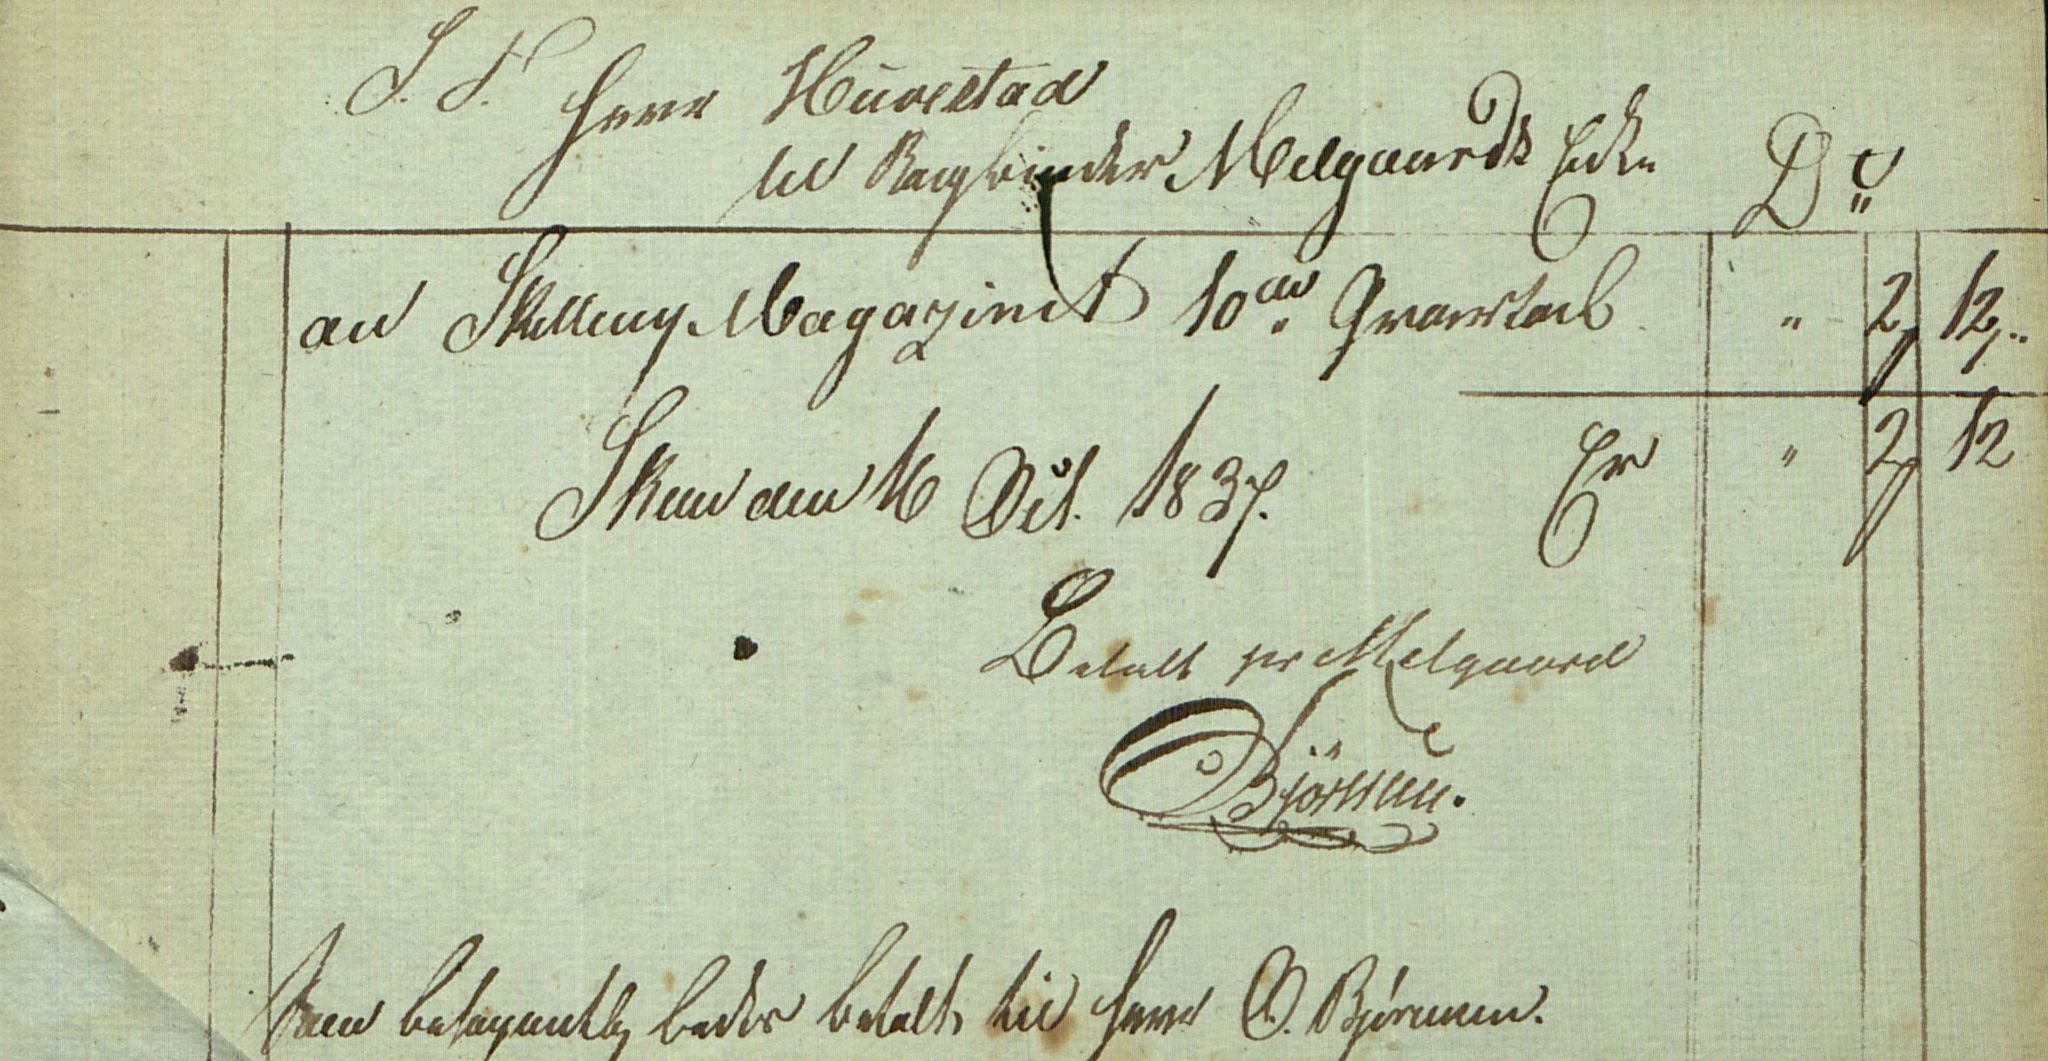 S. T. Herr Huvestad
til Bogbinder Melgaards Enke Dr
an Skilling Magazinet 10de Qvartal " 2 12
Skien den 16 Oct. 1837. Er " 2 12
Betalt for Melgaard
O Björnsen.
Som behageligt bedes betalt til Herr O. Björnsen.